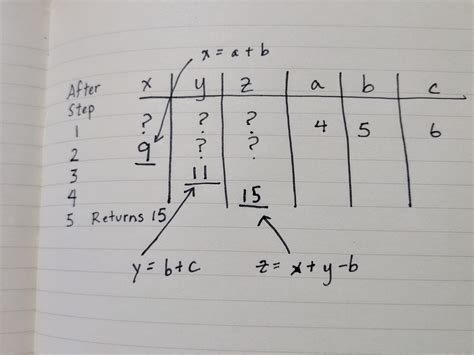 x = a + b
After Step x y z a b c
1 ? ? ? 4 5 6
2 9 ? ?
3 11
4 15
5 Returns 15
y = b + c z = x + y - b